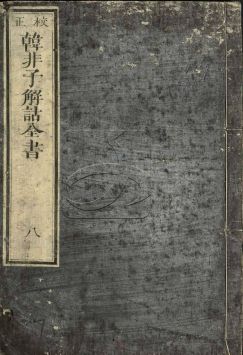 校正
韓非子解詁全書
八